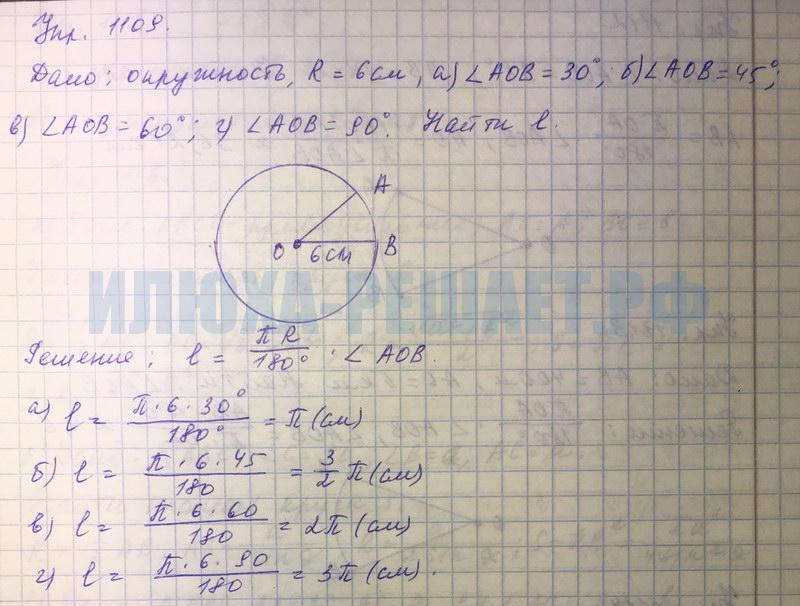 Упр. 1109.
Дано: окружность, R = 6 см, а) ∠AOB = 30°; б) ∠AOB = 45°;
в) ∠AOB = 60°; г) ∠AOB = 90°. Найти l.
A
O
6 см
B
ИЛЮХА-РЕШАЕТ.РФ
Решение: l = πR/180° · ∠AOB.
а) l = π·6·30°/180° = π (см)
б) l = π·6·45/180 = 3/2 π (см)
в) l = π·6·60/180 = 2π (см)
г) l = π·6·90/180 = 3π (см).